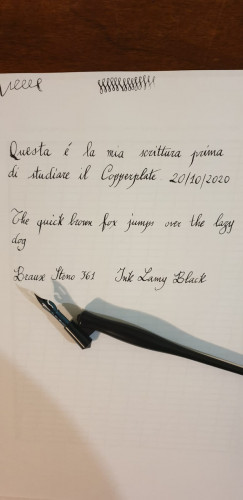 Questa é la mia scrittura prima
di studiare il Copperplate 20/10/2020
The quick brown fox jumps over the lazy
dog
Brause Steno 361 Ink Lamy Black